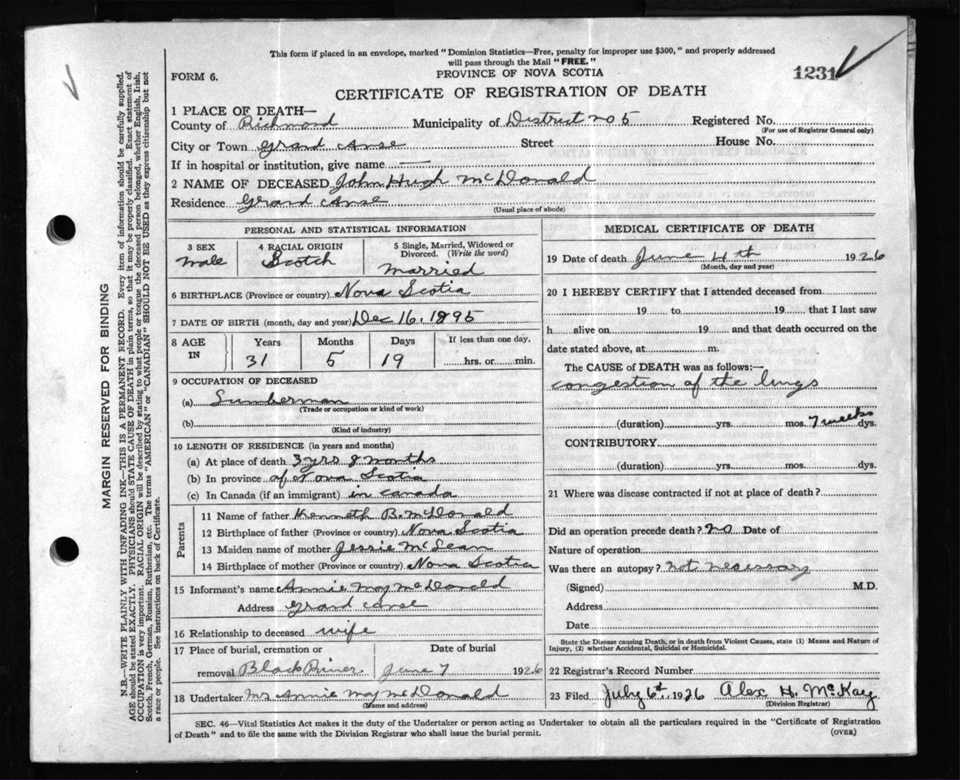 This form if placed in an envelope, marked "Dominion Statistics—Free, penalty for improper use $300," and properly addressed
will pass through the Mail "FREE."
PROVINCE OF NOVA SCOTIA
FORM 6.
1231
CERTIFICATE OF REGISTRATION OF DEATH
1 PLACE OF DEATH—
County of Richmond Municipality of District no 5 Registered No.
(For use of Registrar General only)
City or Town Grand Anse Street House No.
If in hospital or institution, give name —
2 NAME OF DECEASED John Hugh McDonald
Residence Grand Anse
(Usual place of abode)
PERSONAL AND STATISTICAL INFORMATION
3 SEX
male
4 RACIAL ORIGIN
Scotch
5 Single, Married, Widowed or
Divorced. (Write the word)
married
6 BIRTHPLACE (Province or country) Nova Scotia
7 DATE OF BIRTH (month, day and year) Dec 16, 1895
8 AGE
IN
Years
31
Months
5
Days
19
If less than one day,
hrs. or min.
9 OCCUPATION OF DECEASED
(a) Lumberman
(Trade or occupation or kind of work)
(b)
(Kind of industry)
10 LENGTH OF RESIDENCE (in years and months)
(a) At place of death 3 yrs 8 months
(b) In province of Nova Scotia
(c) In Canada (if an immigrant) in Canada
Parents
11 Name of father Kenneth B. McDonald
12 Birthplace of father (Province or country) Nova Scotia
13 Maiden name of mother Jessie McLean
14 Birthplace of mother (Province or country) Nova Scotia
15 Informant's name Annie May McDonald
Address Grand Anse
16 Relationship to deceased wife
17 Place of burial, cremation or Date of burial
removal Black River June 7 1926
18 Undertaker Mr Annie May McDonald
(Name and address)
MEDICAL CERTIFICATE OF DEATH
19 Date of death June 4th 1926
(Month, day and year)
20 I HEREBY CERTIFY that I attended deceased from
19 to 19 that I last saw
h alive on 19 and that death occurred on the
date stated above, at m.
The CAUSE of DEATH was as follows:—
congestion of the lungs
(duration) yrs. mos. 7 weeks dys.
CONTRIBUTORY
(duration) yrs. mos. dys.
21 Where was disease contracted if not at place of death?
Did an operation precede death? no Date of
Nature of operation
Was there an autopsy? not necessary
(Signed) M.D.
Address
Date
State the Disease causing Death, or in death from Violent Causes, state (1) Means and Nature of
Injury, (2) whether Accidental, Suicidal or Homicidal.
22 Registrar's Record Number
23 Filed July 6th, 1926 Alex H. McKay
(Division Registrar)
SEC. 46—Vital Statistics Act makes it the duty of the Undertaker or person acting as Undertaker to obtain all the particulars required in the "Certificate of Registration
of Death" and to file the same with the Division Registrar who shall issue the burial permit.
(OVER)
MARGIN RESERVED FOR BINDING
N.B.—WRITE PLAINLY WITH UNFADING INK—THIS IS A PERMANENT RECORD. Every item of information should be carefully supplied.
AGE should be stated EXACTLY. PHYSICIANS should STATE CAUSE OF DEATH in plain terms, so that it may be properly classified. Exact statement of
OCCUPATION is very important. RACIAL ORIGIN will be described by stating to what people or tongue the deceased person belonged, whether English, Irish,
Scotch, French, German, Russian, Ruthenian, etc. The terms "AMERICAN" or "CANADIAN" SHOULD NOT BE USED as they express citizenship but not
a race or people. See instructions on back of Certificate.